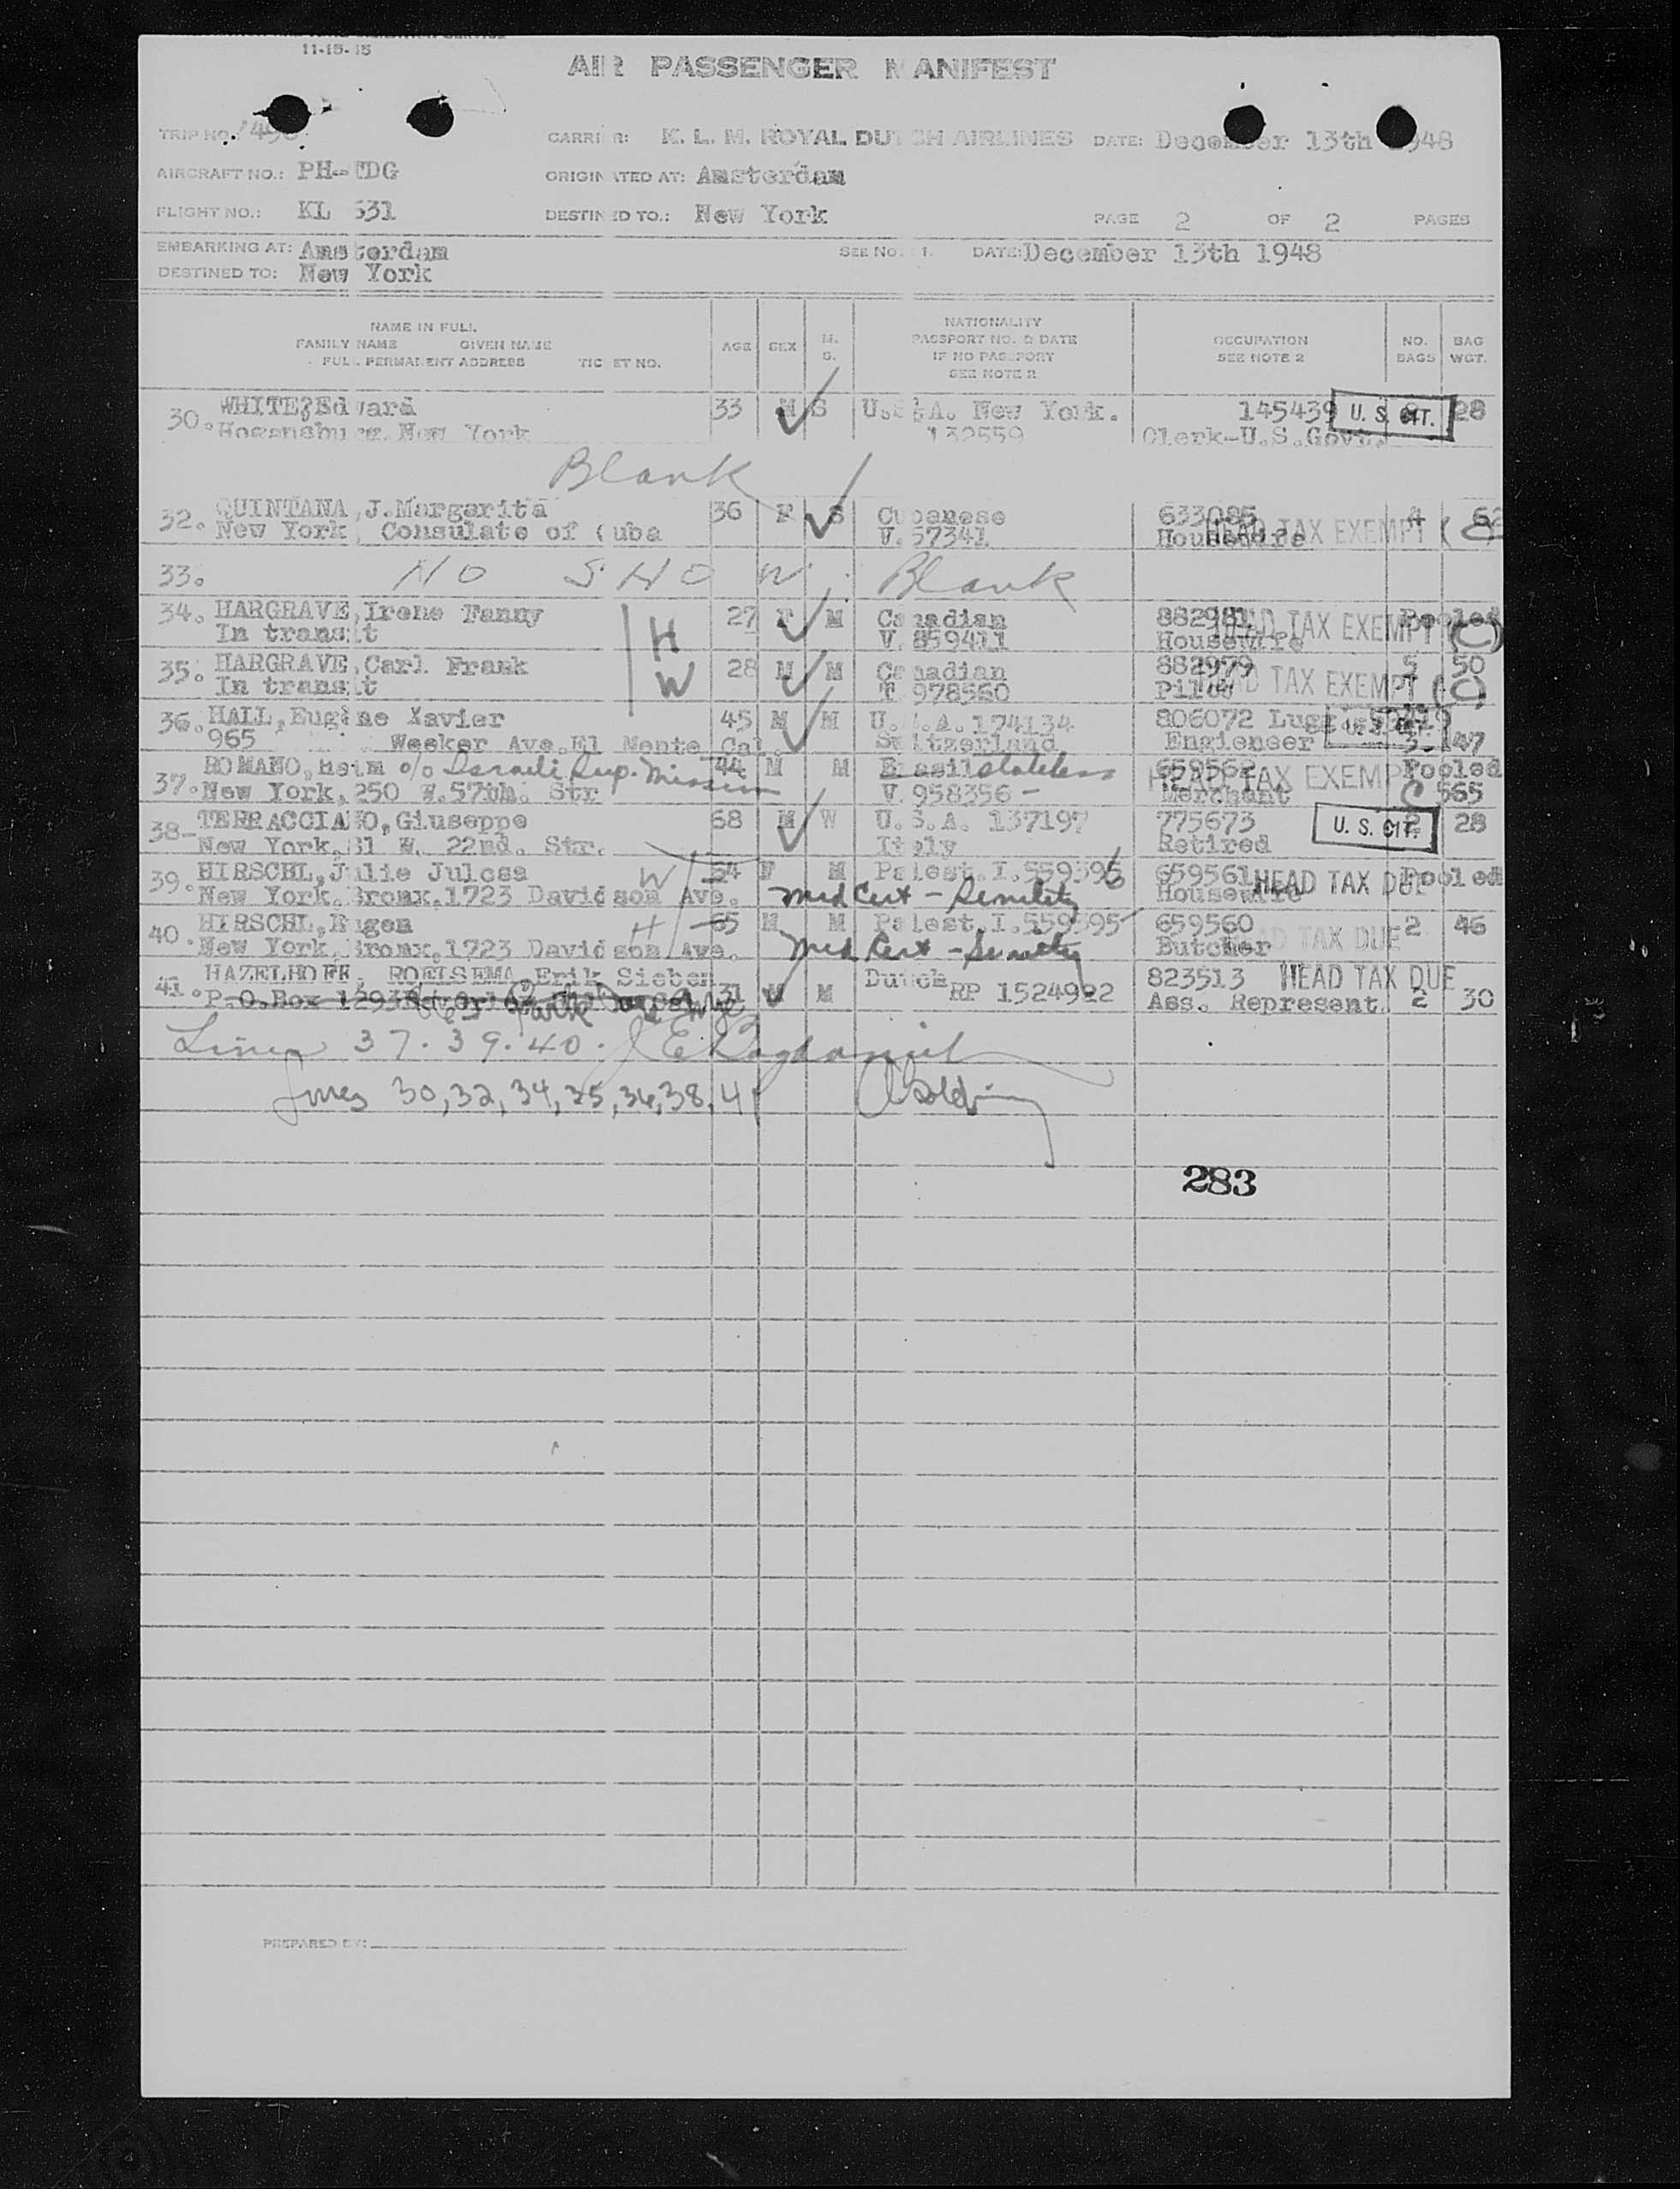 11-15-
AIR PASSENGER MANIFEST
TRIP NO. CARRIER: K. L. M. ROYAL DUTCH AIRLINES DATE: December 13th 1948
AIRCRAFT NO.: PH-TDG ORIGINATED AT: Amsterdam
FLIGHT NO.: KL 631 DESTINED TO.: New York PAGE 2 OF 2 PAGES
EMBARKING AT: Amsterdam SEE NOTE 1. DATE: December 13th 1948
DESTINED TO: New York
NAME IN FULL
FAMILY NAME GIVEN NAME
FULL PERMANENT ADDRESS TICKET NO.
AGE SEX M. S.
NATIONALITY
PASSPORT NO. & DATE
IF NO PASSPORT
SEE NOTE 2
OCCUPATION
SEE NOTE 2
NO. BAGS
BAG WGT.
30. WHITE, Edward 33 M S U.S.A. New York. 145439 U. S. CIT. 28
New York 132559 Clerk-U.S.Govt.
Blank
32. QUINTANA, J.Margarita 36 F S Cubanese 633085 4 62
New York, Consulate of Cuba V.57341 Housewife HEAD TAX EXEMPT (C)
33. NO SHOW Blank
34. HARGRAVE, Irene Fanny H 27 F M Canadian 882981 Pooled
In transit V.859411 Housewife HEAD TAX EXEMPT (C)
35. HARGRAVE, Carl Frank W 28 M M Canadian 882979 5 50
In transit T 978560 Pilot HEAD TAX EXEMPT (C)
36. HALL, Eugène Xavier 45 M M U.S.A. 174134 806072 U. S. CIT.
965 Weeker Ave. El Monte Cal. Switzerland Engieneer 3. 47
37. ROMANO, heim c/o Israeli Sup. Mission 44 M M Brasil stateless 659562 Pooled
New York, 250 W.57th. Str V.958356 - Merchant HEAD TAX EXEMPT C 565
38- TERRACCIANO, Giuseppe 68 M W U.S.A. 137197 775673 U. S. CIT. 2 28
New York. 31 W. 22nd. Str. Italy Retired
39. HIRSCHL, Julie Julcsa W 54 F M Palest.I.559396 659561 HEAD TAX DUE Pooled
New York. Bronx.1723 Davidson Ave. Med Cert - Senility Housewife
40. HIRSCHL, Eugen H 65 M M Palest.I.559595 659560 2 46
New York. Bronx.1723 Davidson Ave. Med Cert - Senility Butcher HEAD TAX DUE
41. HAZELHOFF, ROELSEMA, Erik Sieben 31 M M Dutch RP 1524922 823513 HEAD TAX DUE
P.O.Box Ass. Represent. 2 30
Lines 37. 39. 40.
Lines 30, 32, 34, 35, 36, 38, 41
283
PREPARED BY: